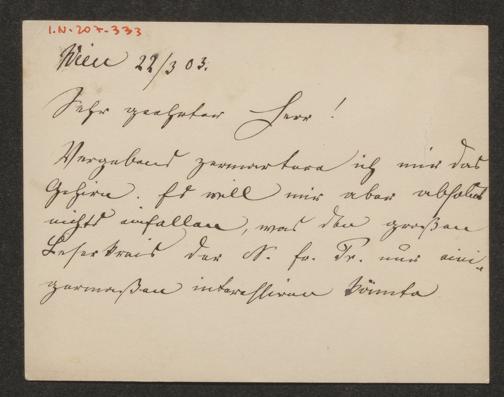 I.N. 207.333
Wien 22/3 03.
Sehr geehrter Herr!
Vergebens zermartere ich mir das
Gehirn. Es will mir aber absolut
nichts einfallen, was den großen
Leserkreis der N. fr. Pr. nur eini-
germaßen interessiren könnte